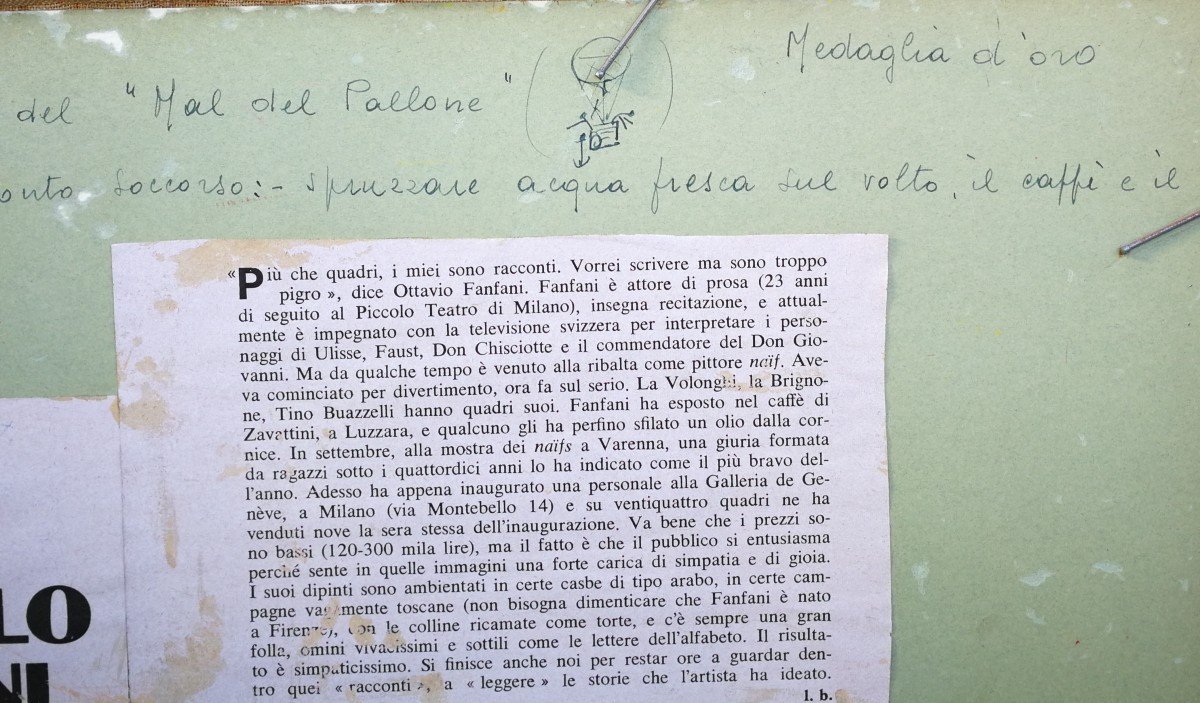 Medaglia d'oro
del "Mal del Pallone" ( )
onto soccorso:- spruzzare acqua fresca sul volto, il caffè è il
«Più che quadri, i miei sono racconti. Vorrei scrivere ma sono troppo
pigro», dice Ottavio Fanfani. Fanfani è attore di prosa (23 anni
di seguito al Piccolo Teatro di Milano), insegna recitazione, e attual-
mente è impegnato con la televisione svizzera per interpretare i perso-
naggi di Ulisse, Faust, Don Chisciotte e il commendatore del Don Gio-
vanni. Ma da qualche tempo è venuto alla ribalta come pittore naïf. Ave-
va cominciato per divertimento, ora fa sul serio. La Volonghi, la Brigno-
ne, Tino Buazzelli hanno quadri suoi. Fanfani ha esposto nel caffè di
Zavattini, a Luzzara, e qualcuno gli ha perfino sfilato un olio dalla cor-
nice. In settembre, alla mostra dei naïfs a Varenna, una giuria formata
da ragazzi sotto i quattordici anni lo ha indicato come il più bravo del-
l'anno. Adesso ha appena inaugurato una personale alla Galleria de Ge-
nève, a Milano (via Montebello 14) e su ventiquattro quadri ne ha
venduti nove la sera stessa dell'inaugurazione. Va bene che i prezzi so-
no bassi (120-300 mila lire), ma il fatto è che il pubblico si entusiasma
perché sente in quelle immagini una forte carica di simpatia e di gioia.
I suoi dipinti sono ambientati in certe casbe di tipo arabo, in certe cam-
pagne vagamente toscane (non bisogna dimenticare che Fanfani è nato
a Firenze), con le colline ricamate come torte, e c'è sempre una gran
folla, omini vivacissimi e sottili come le lettere dell'alfabeto. Il risulta-
to è simpaticissimo. Si finisce anche noi per restar ore a guardar den-
tro quei «racconti», a «leggere» le storie che l'artista ha ideato.
l. b.
LO
NI